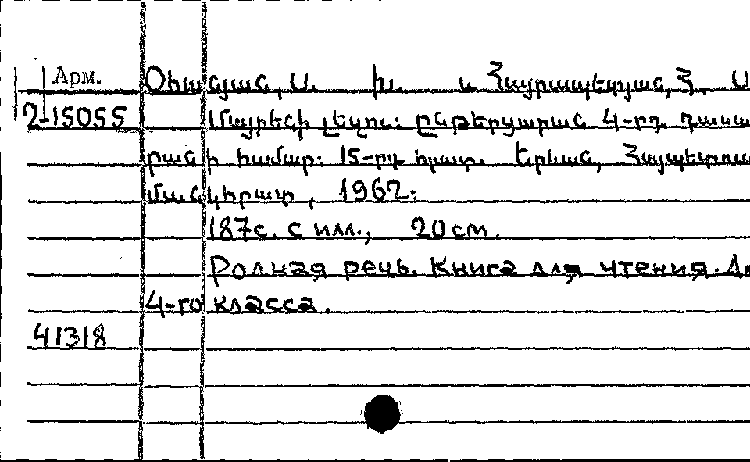 Арм. Օհանյան, Ս. Խ. և Հայրապետյան, Հ. Ս
2-15055 Մայրենի լեզու: Ընթերցարան 4-րդ դասա
րանի համար: 15-րդ հրատ. Երևան, Հայպետուս
մանկհրատ, 1962.
187с. с илл., 20см.
Родная речь. Книга для чтения. Дл
4-го класса.
41318